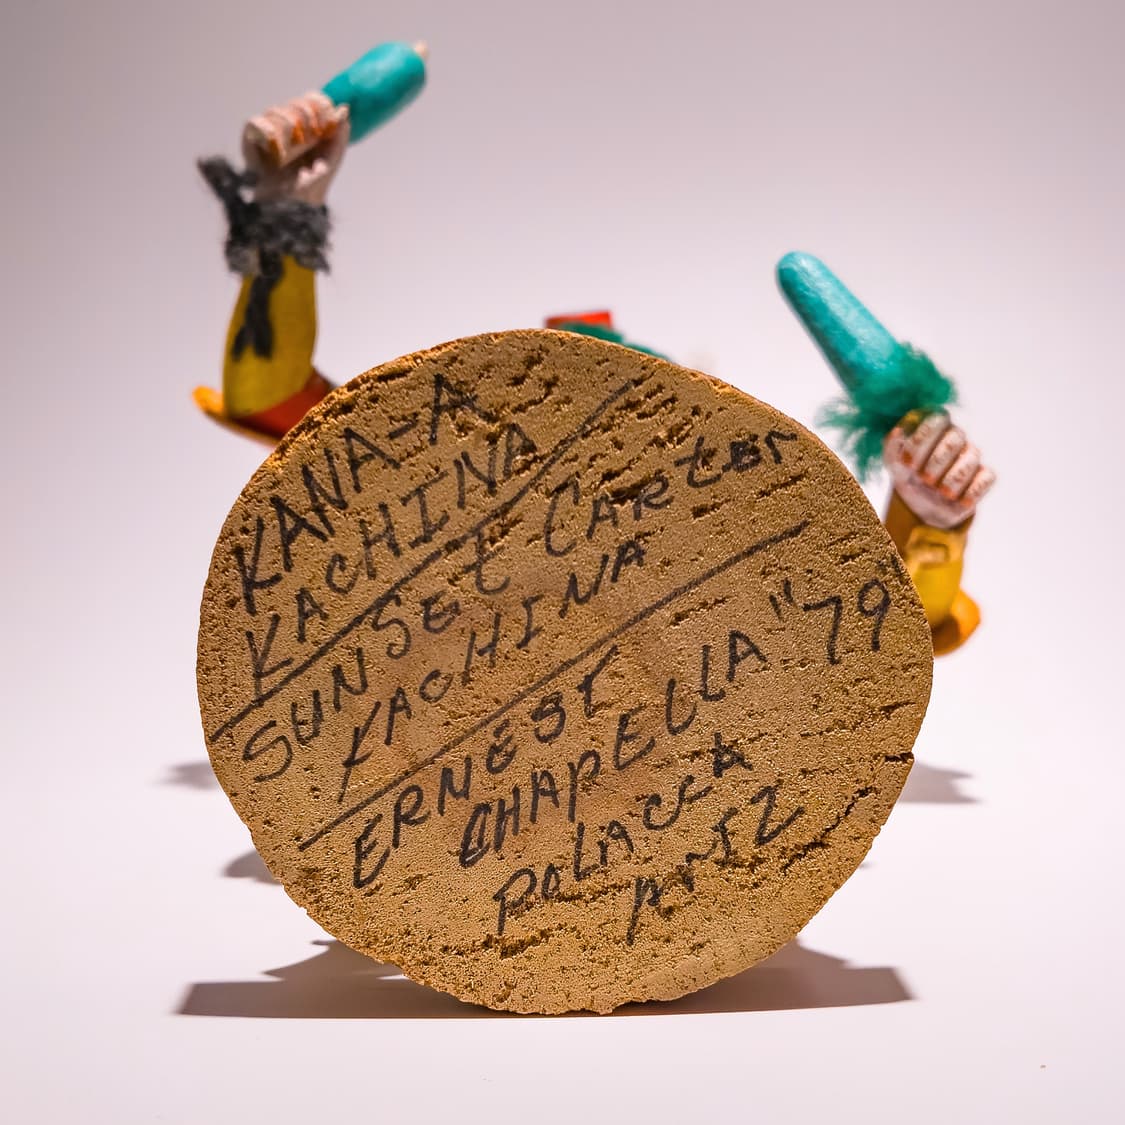 KANA-A
KACHINA
SUNSEt CARteR
KACHINA
ERNEST
CHAPELLA "79"
POLACCA
ARIZ